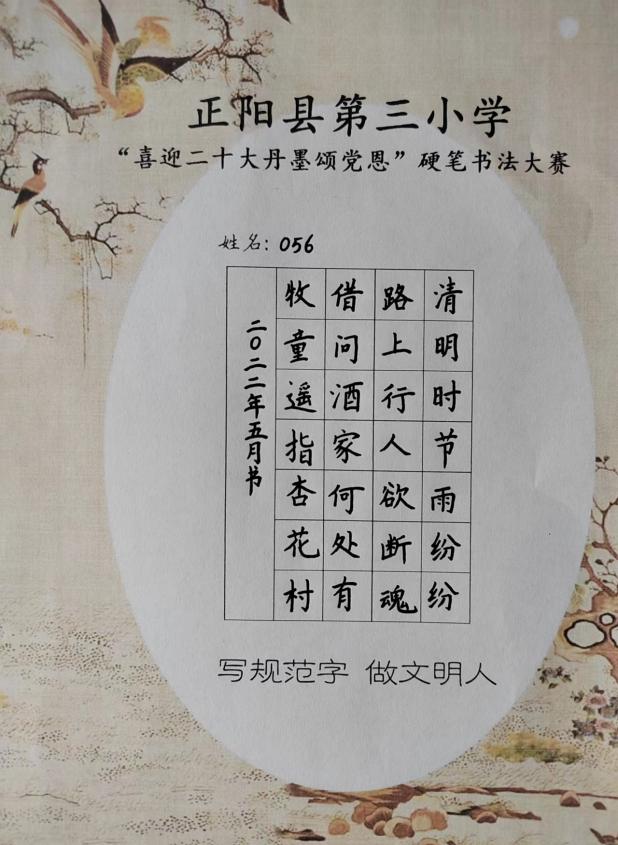 正阳县第三小学
“喜迎二十大丹墨颂党恩”硬笔书法大赛
姓名：056
清明时节雨纷纷
路上行人欲断魂
借问酒家何处有
牧童遥指杏花村
二〇二二年五月书
写规范字 做文明人